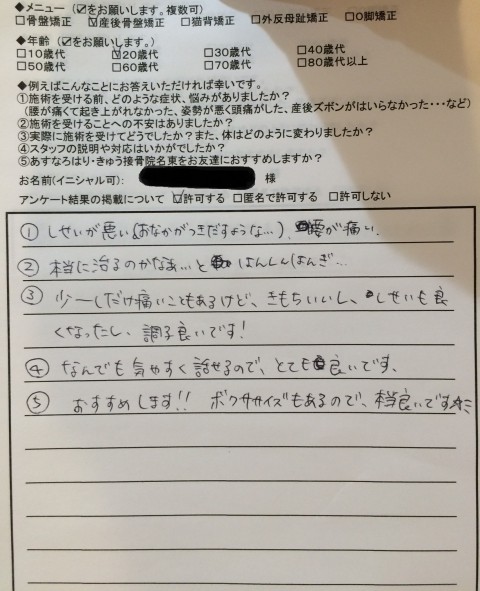 ◆メニュー（☑をお願いします。複数可）
□骨盤矯正 ☑産後骨盤矯正 □猫背矯正 □外反母趾矯正 □O脚矯正
◆年齢（☑をお願いします。）
□10歳代 ☑20歳代 □30歳代 □40歳代
□50歳代 □60歳代 □70歳代 □80歳代以上
◆例えばこんなことにお答えいただければ幸いです。
①施術を受ける前、どのような症状、悩みがありましたか？
（腰が痛くて起き上がれなかった、姿勢が悪く頭痛がした、産後ズボンがはいらなかった・・・など）
②施術を受けることへの不安はありましたか？
③実際に施術を受けてどうでしたか？また、体はどのように変わりましたか？
④スタッフの説明や対応はいかがでしたか？
⑤あすなろはり・きゅう接骨院名東をお友達におすすめしますか？
お名前（イニシャル可）： 様
アンケート結果の掲載について ☑許可する □匿名で許可する □許可しない
① しせいが悪い(おなかがつきだすような…)、腰が痛い.
② 本当に治るのかなぁ…と はんしんはんぎ…
③ 少ーしだけ痛いこともあるけど、きもちいいし、しせいも良
くなったし、調子良いです!
④ なんでも気やすく話せるので、とても良いです、
⑤ おすすめします!! ボクササイズもあるので、本当良いです☆